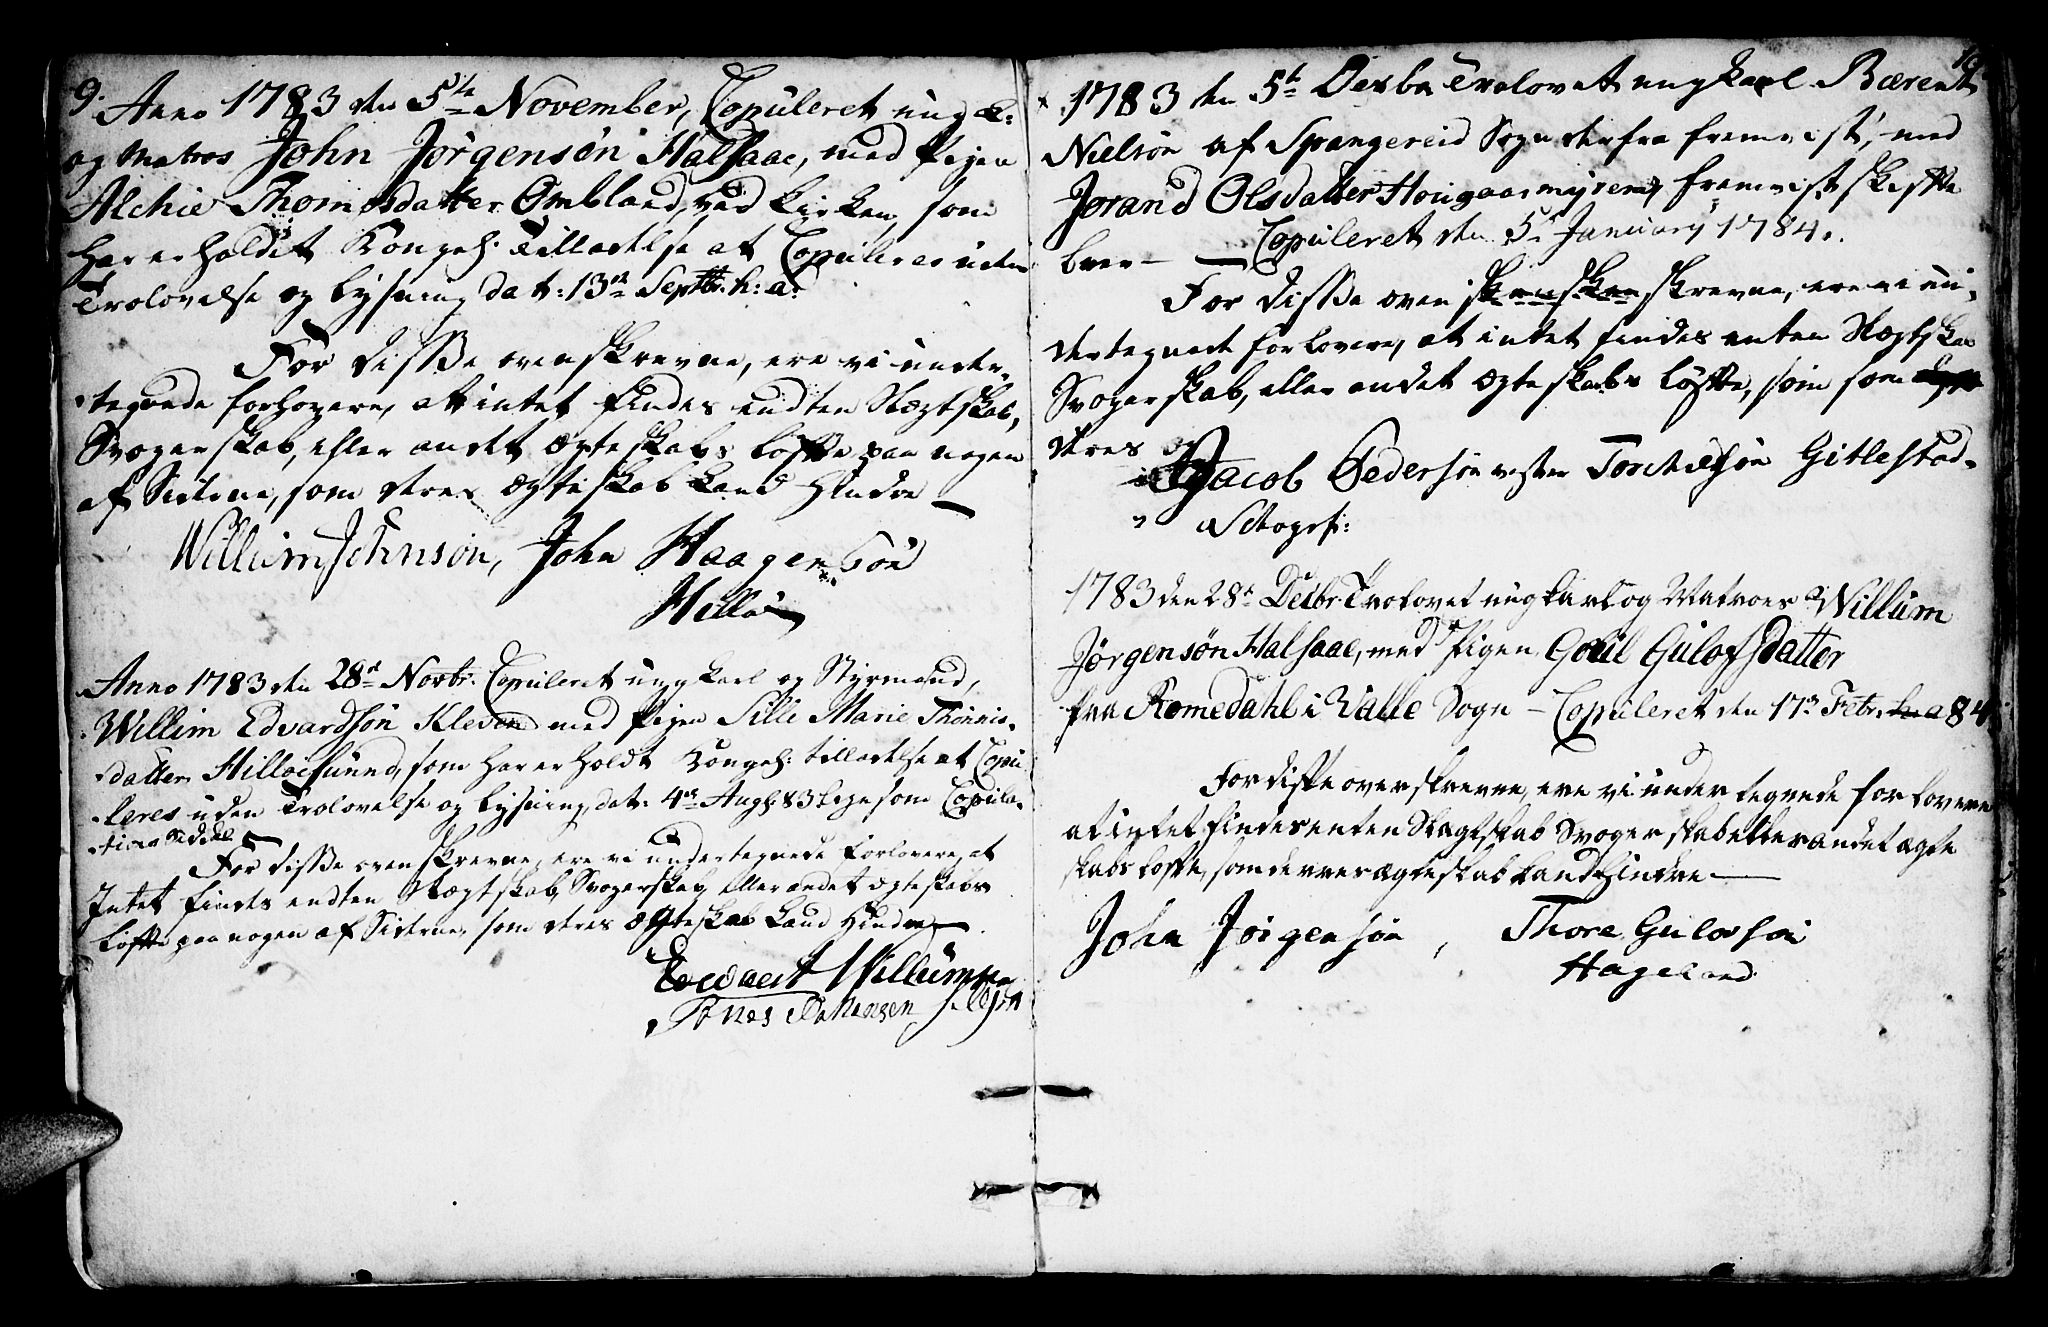 9.
Anno 1783 den 5te November, Copuleret ung k:
og Matros John Jörgensön Halsaae, med Pigen
Alchie Thomesdatter Ombland, ved Kirken, som
har erholdet Kongel: Tilladelse at Copuleres uden
Trolovelse og Lysning dat: 13de Septbr. h: a:
For disse ovenskrevne, ere vi under-
tegnede forlovere, at intet findes endten Slægtskab,
Svogerskab, eller andet Ægteskabs Løfte paa nogen
af Siderne, som deres Ægteskab kand Hindre —
Willum Johnson, John Haagensön
Hilløe
Anno 1783 den 28de Novbr. Copuleret ungkarl og Styrmand,
Willim Edvardsön Kleven med Pigen Silli Marie Thönnis-
datter Hilløesund, som har erholdt Kongel: tilladelse at Copu-
leres uden Trolovelse og Lysning, dat: 4de Aug: 83 ligesom Copula-
tions Seddel
For disse ovenskrevne, ere vi undertegnede Forlovere, at
Intet findes endten Slægtskab, Svogerskab eller andet Ægteskabs
Løfte paa nogen af Siderne, som deres Ægteskab kand Hindre —
Edvaert Willumsen
Tönes Johansen
10
x 1783 den 5te Decbr Trolovet ungkarl Bærent
Nielsön af Spangereid Sogn derfra fremvist, med
Jorand Olsdatter Hougaasmyren, fremvist skifte
brev — Copuleret den 5te January 1784.
For disse oven skrevne, ere vi un-
dertegnede forlovere, at intet findes enten Slægtskab
Svogerskab, eller andet Ægteskabs Løfte, som som
deres
Jacob Pedersön Torchelsön Gitlestad.
1783 den 28de Decbr. Trolovet ungkarl og Matroes Willum
Jörgensön Halsaae, med Pigen Gulofsdatter
fra Romedahl i Valle Sogn — Copuleret den 17de Febr. 84
For disse overskrevne, ere vi undertegnede forlovere
at intet findes enten Slagtskab Svogerskab eller andet ægte
skabs Løfte, som deres ægteskab kand Hindre —
John Jörgensön, Thore Gulovsön
Hageland